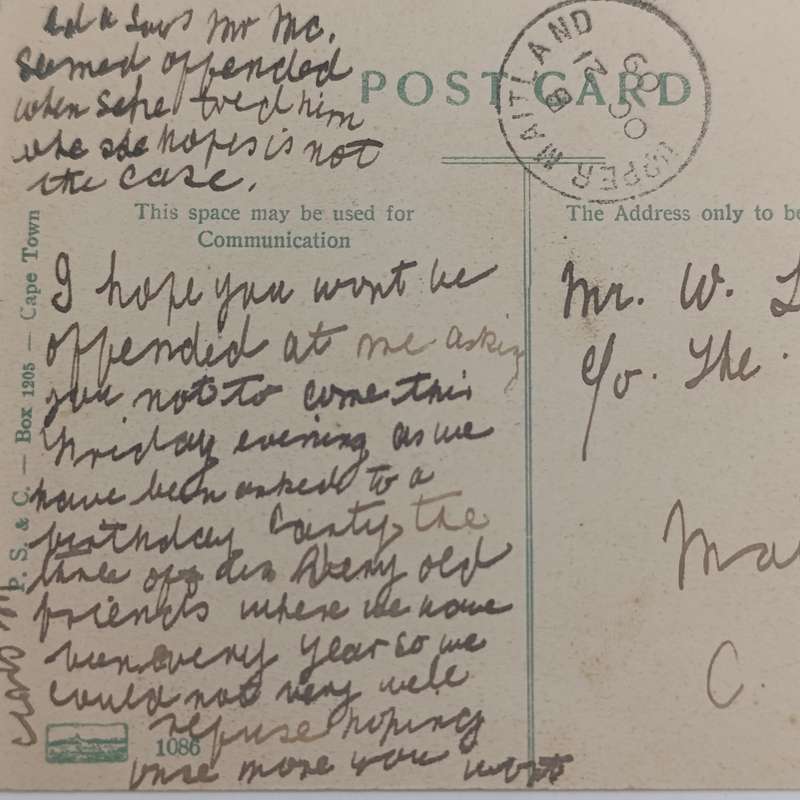 says Mr Mc.
seemed offended
when she told him
she hopes is not
the case.
POST CARD
UPPER MAITLAND
B
21
OC
09
This space may be used for
Communication
The Address only to be
P. S. & C. — Box 1205 — Cape Town
I hope you wont be
offended at me asking
you not to come this
Friday evening as we
have been asked to a
birthday Party, the
three of us Very old
friends where we have
been every year so we
could not very well
refuse hoping
once more you wont
1086
Mr. W. L
c/o. The
Ma
C.